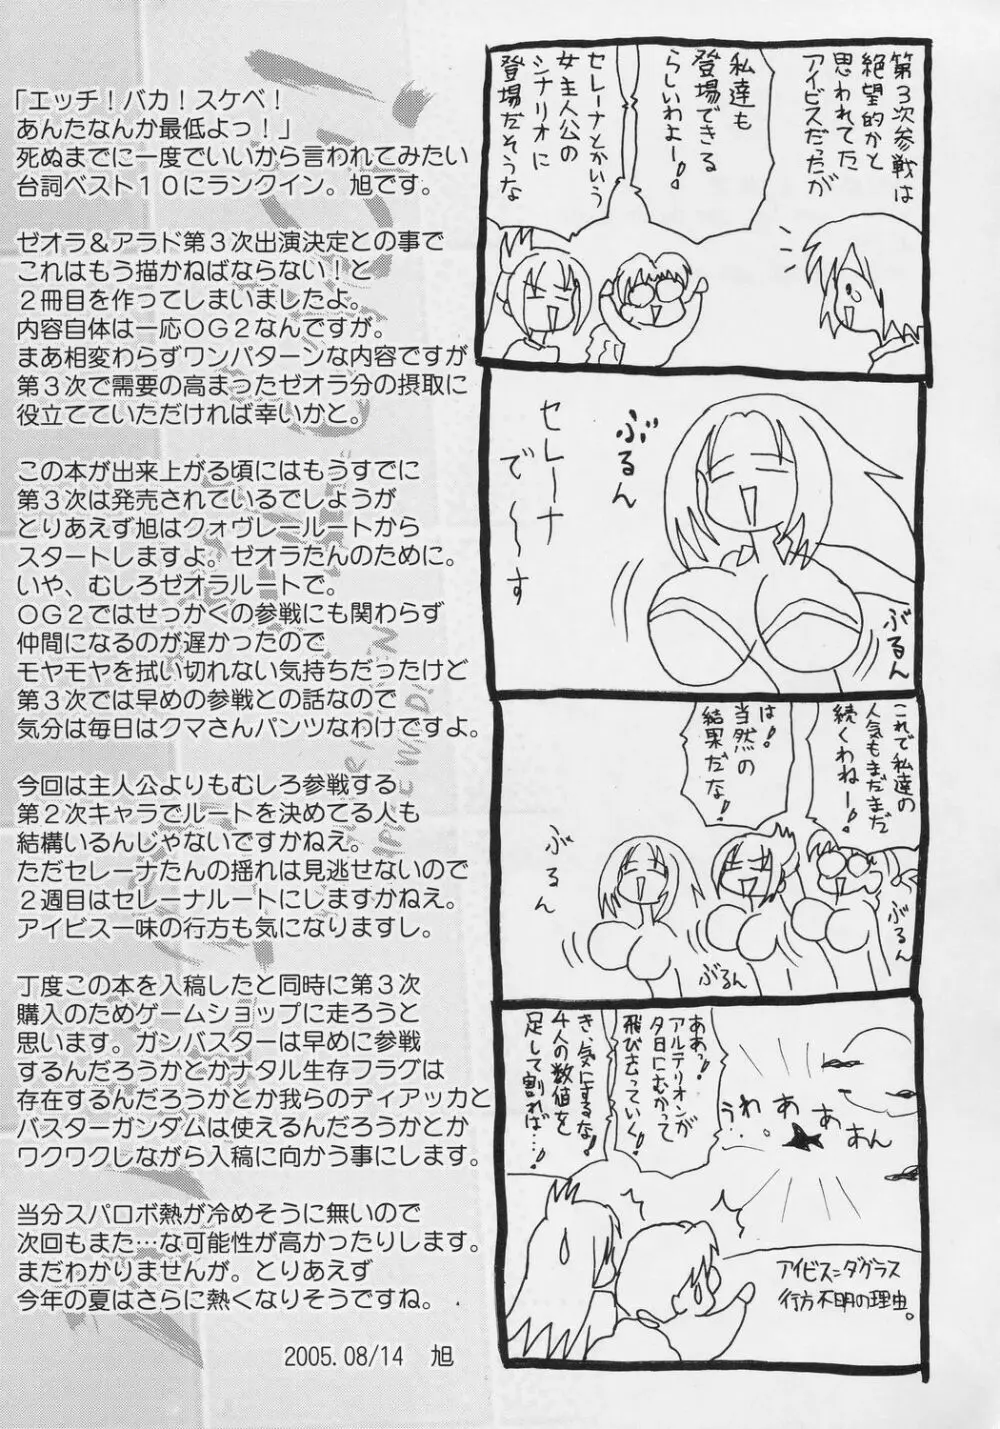 「エッチ！バカ！スケベ！
あんたなんか最低よっ！」
死ぬまでに一度でいいから言われてみたい
台詞ベスト１０にランクイン。旭です。
ゼオラ＆アラド第３次出演決定との事で
これはもう描かねばならない！と
２冊目を作ってしまいましたよ。
内容自体は一応ＯＧ２なんですが。
まあ相変わらずワンパターンな内容ですが
第３次で需要の高まったゼオラ分の摂取に
役立てていただければ幸いかと。
この本が出来上がる頃にはもうすでに
第３次は発売されているでしょうが
とりあえず旭はクォヴレールートから
スタートしますよ。ゼオラたんのために。
いや、むしろゼオラルートで。
ＯＧ２ではせっかくの参戦にも関わらず
仲間になるのが遅かったので
モヤモヤを拭い切れない気持ちだったけど
第３次では早めの参戦との話なので
気分は毎日はクマさんパンツなわけですよ。
今回は主人公よりもむしろ参戦する
第２次キャラでルートを決めてる人も
結構いるんじゃないですかねえ。
ただセレーナたんの揺れは見逃せないので
２週目はセレーナルートにしますかねえ。
アイビス一味の行方も気になりますし。
丁度この本を入稿したと同時に第３次
購入のためゲームショップに走ろうと
思います。ガンバスターは早めに参戦
するんだろうかとかナタル生存フラグは
存在するんだろうかとか我らのディアッカと
バスターガンダムは使えるんだろうかとか
ワクワクしながら入稿に向かう事にします。
当分スパロボ熱が冷めそうに無いので
次回もまた…な可能性が高かったりします。
まだわかりませんが。とりあえず
今年の夏はさらに熱くなりそうですね。
2005.08/14　旭
第３次参戦は
絶望的かと
思われてた
アイビスだったが
私達も
登場できる
らしいわよー！
セレーナとかいう
女主人公の
シナリオに
登場だそうな
セレーナ
で〜〜す
ぶるん
ぶるん
これで私達の
人気もまだまだ
続くわねー！
は！
当然の
結果だな！
ぶるん
ぶるん
ぶるん
うわ。ぁあぁん
ああっ！
アルテリオンが
夕日にむかって
飛びさっていく！
き、気にするな！
４人の数値を
足して割れば…！
アイビス＝ダグラス
行方不明の理由。